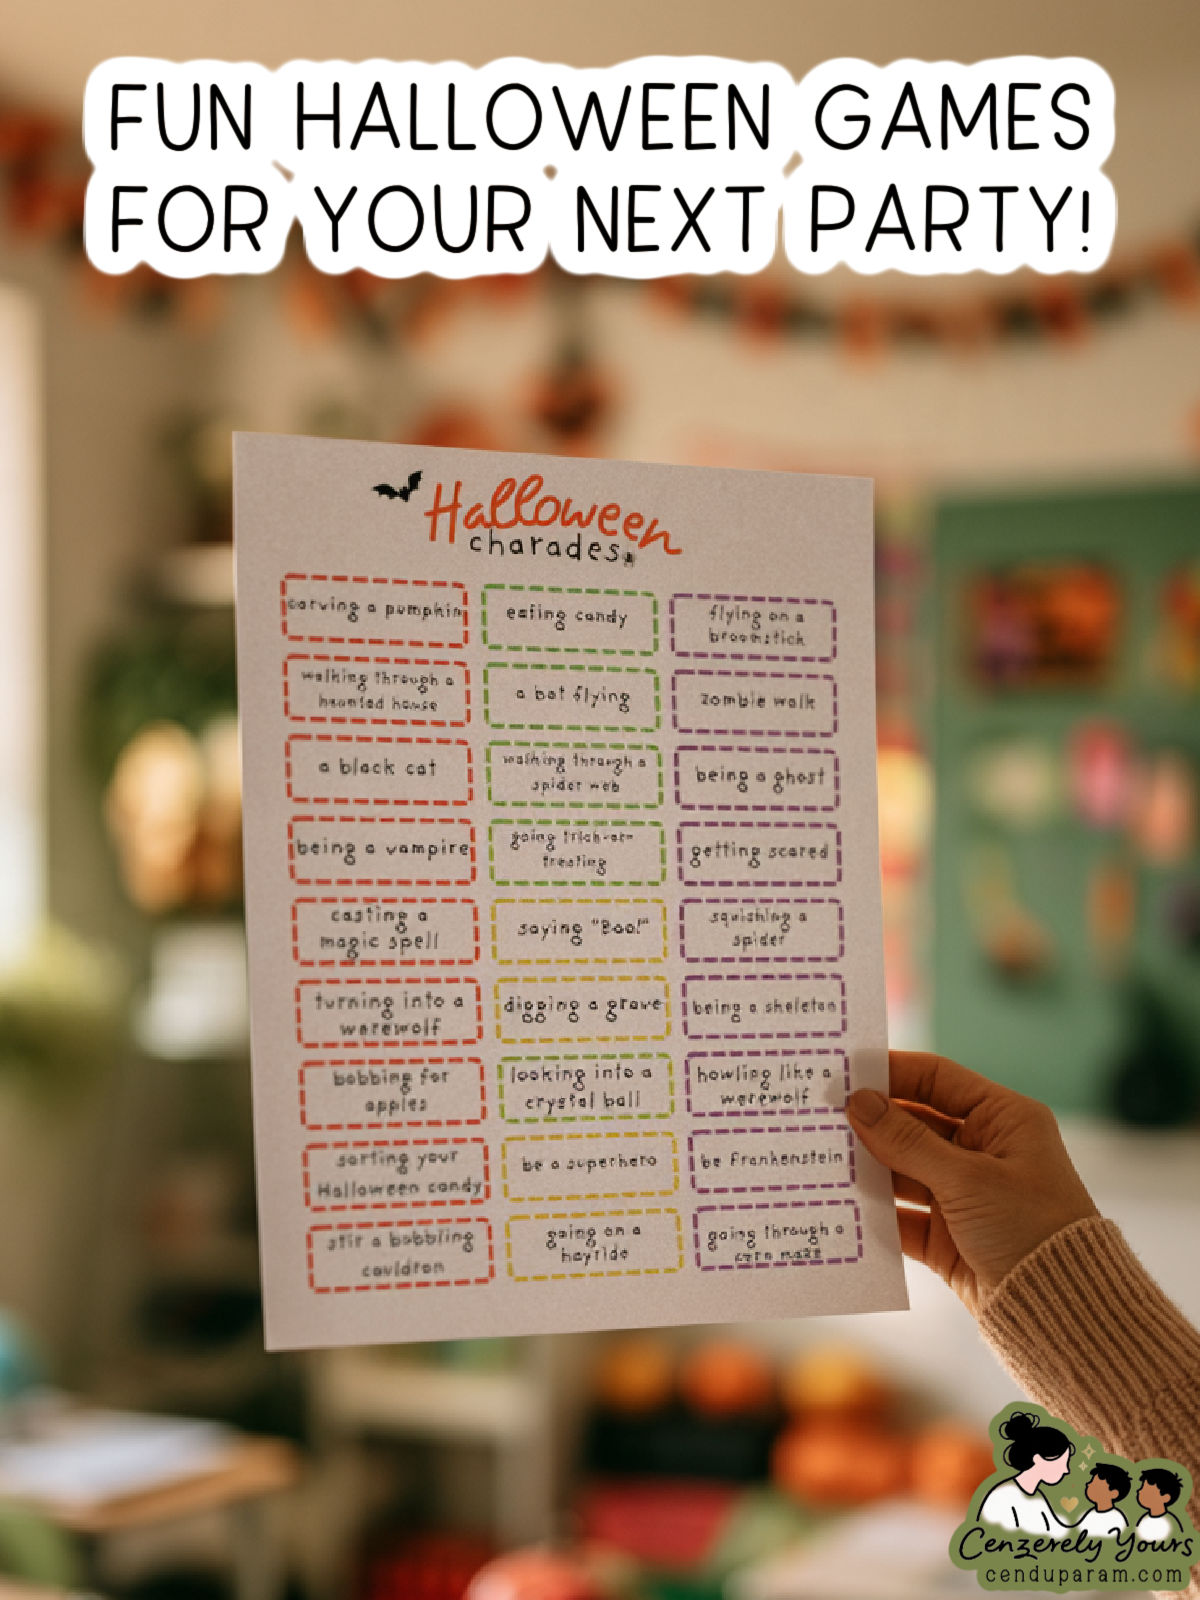 FUN HALLOWEEN GAMES
FOR YOUR NEXT PARTY!
Halloween
charades
carving a pumpkin
eating candy
flying on a
broomstick
walking through a
haunted house
a bat flying
zombie walk
a black cat
walking through a
spider web
being a ghost
being a vampire
going trick-or-
treating
getting scared
casting a
magic spell
saying "Boo!"
squishing a
spider
turning into a
werewolf
digging a grave
being a skeleton
bobbing for
apples
looking into a
crystal ball
howling like a
werewolf
sorting your
Halloween candy
be a superhero
be Frankenstein
stir a bubbling
cauldron
going on a
hayride
going through a
corn maze
Cenzerely Yours
cenduparam.com